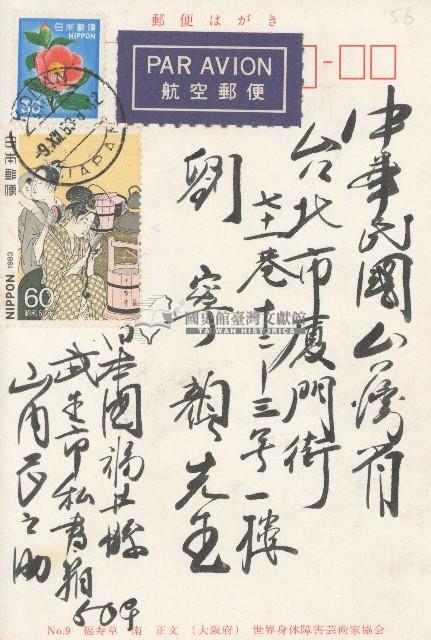 郵便はがき
56
日本郵便
NIPPON
30
PAR AVION
航空郵便
日本郵便
NIPPON 1983
60
昭和58年
中華民國台灣省
台北市廈門街
七十一巷十二-三号一樓
劉寧顏先生
國史館臺灣文獻館
TAIWAN HISTORICA
日本國福井縣
武生市私書箱
50号
山内
之助
No.9 福寿草 南 正文 (大阪府) 世界身体障害芸術家協会